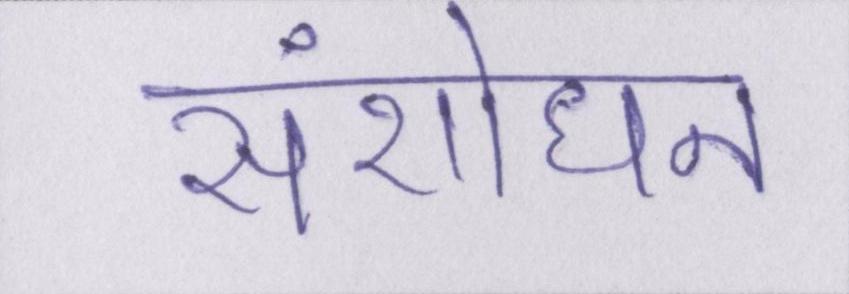 संशोधन